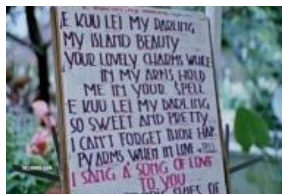 E KUU LEI MY DARLING
MY ISLAND BEAUTY
YOUR LOVELY CHARMS WHILE
IN MY ARMS HOLD
ME IN YOUR SPELL
E KUU LEI MY DARLING
SO SWEET AND PRETTY
I CAN'T FORGET THOSE HAP
PY ARMS WHEN IN LOVE
I SANG A SONG OF LOVE
TO YOU
SKIES OF